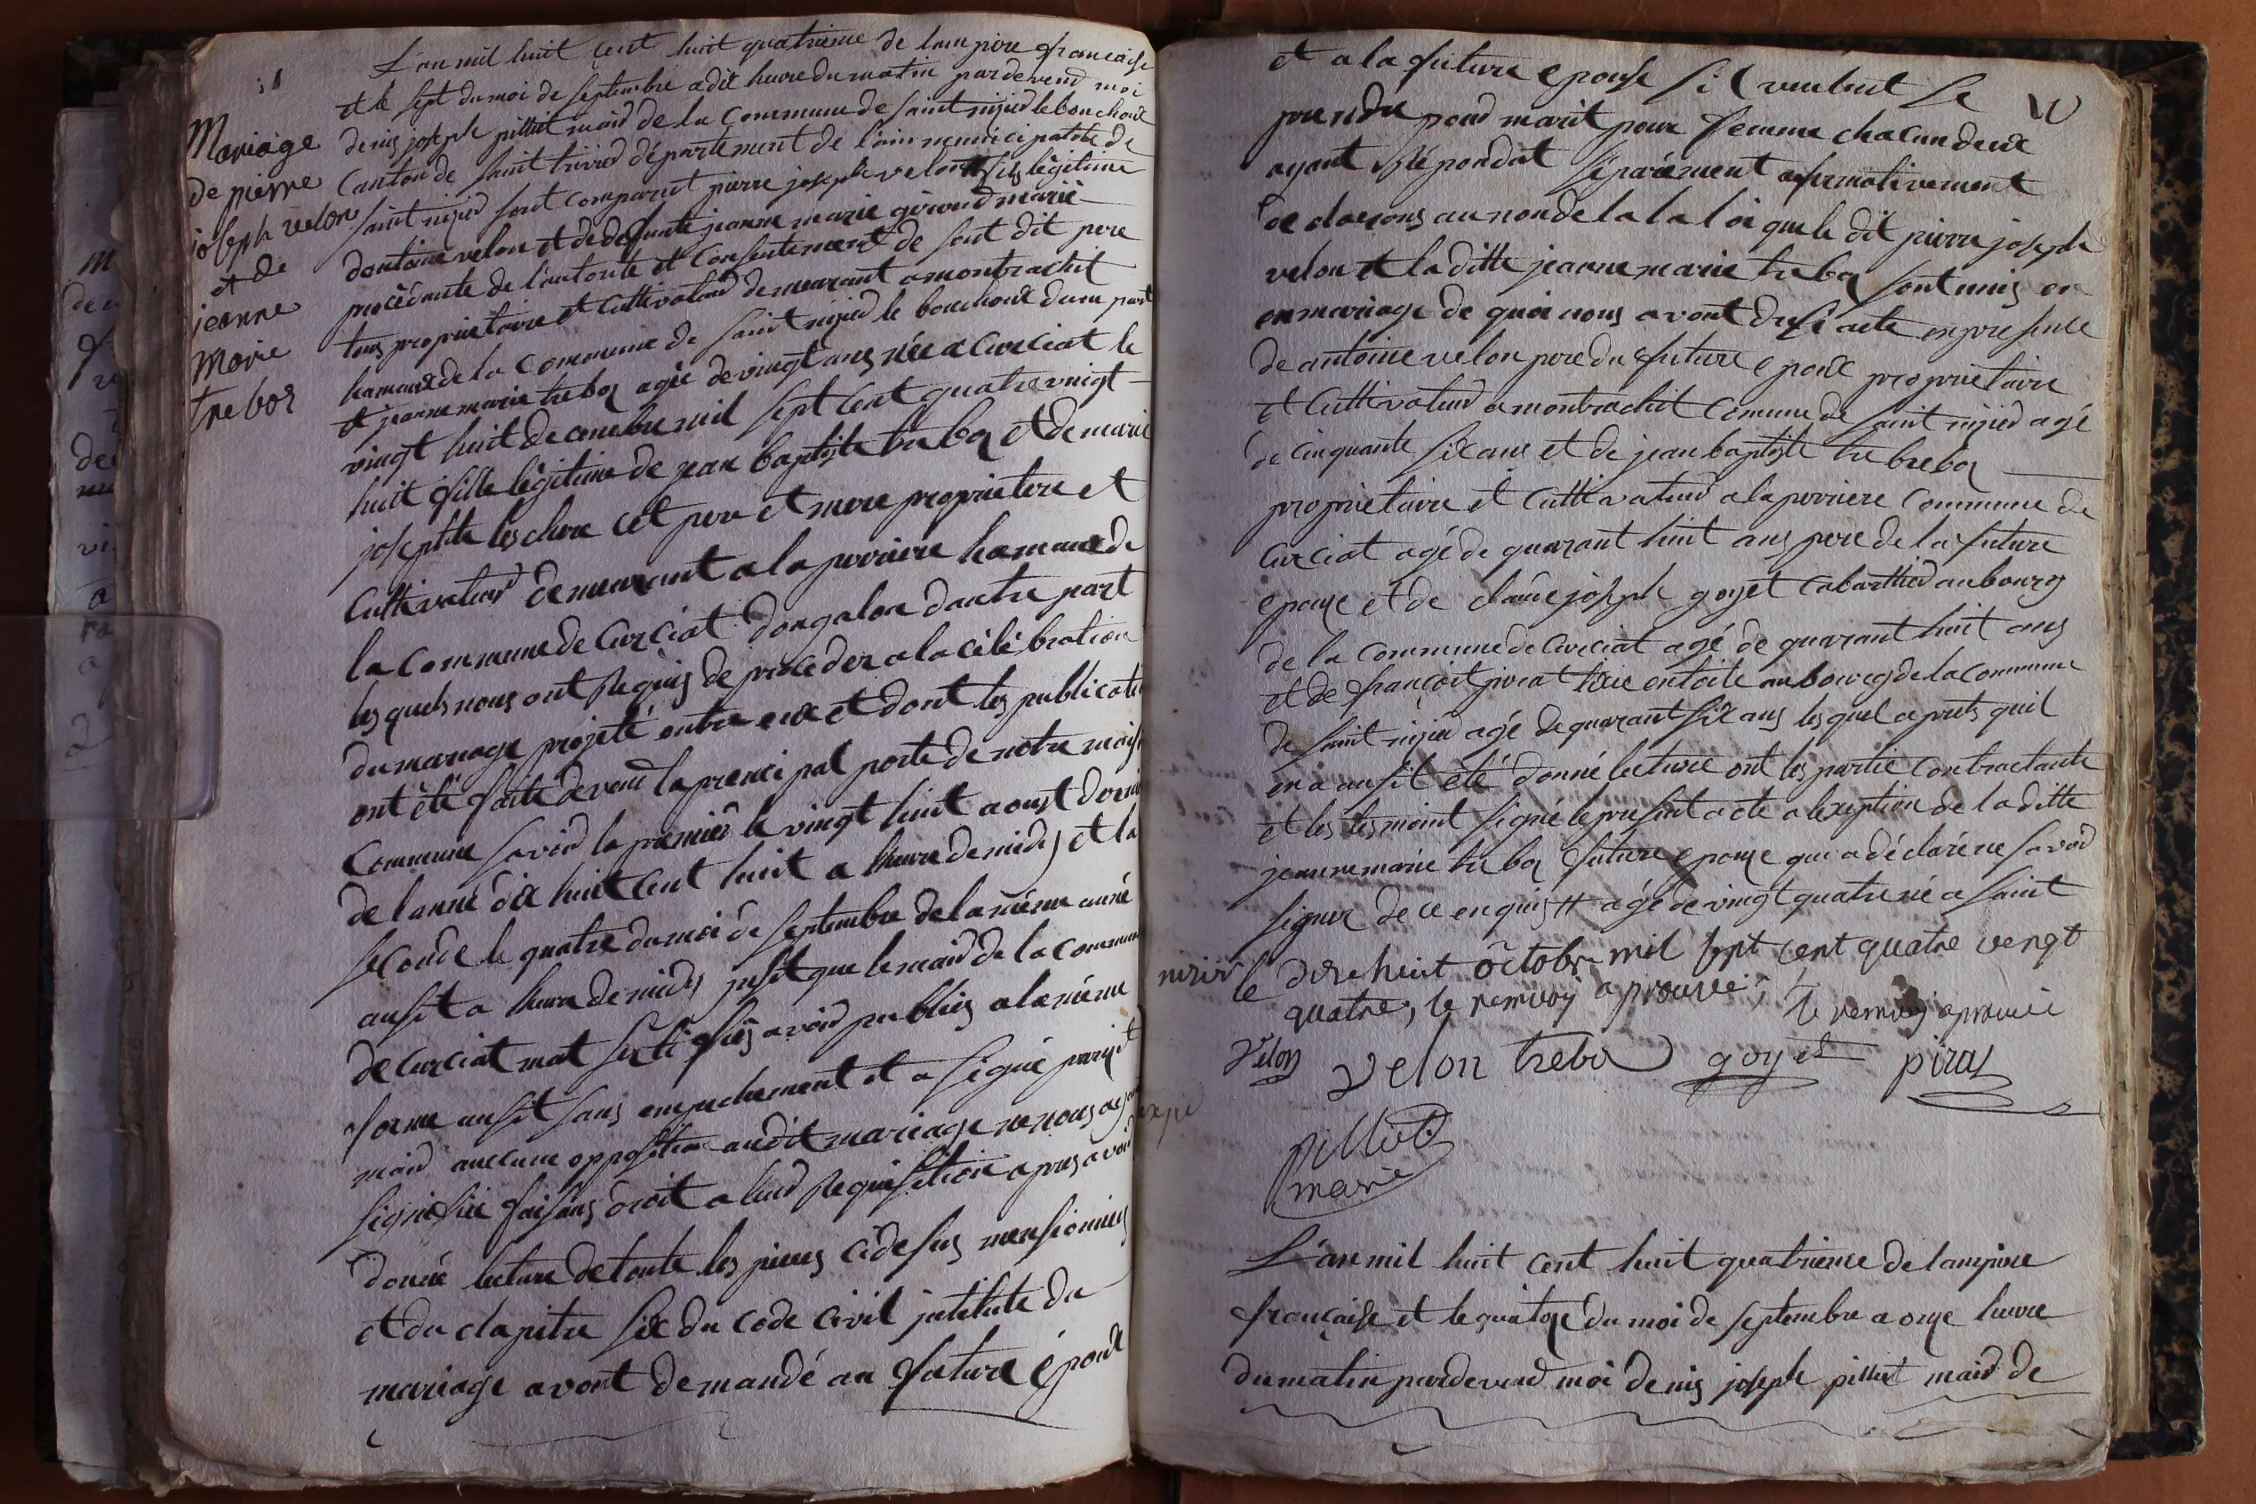 18
Mariage
de pierre
joseph velon
et de
jeanne
Marie
trebos
L'an mil huit cent huit quatrieme de lempire francaise
et le sept du moi de septembre a dix heure du matin pardevend moi
denis joseph pilliut maid de la Commune de saint nizied le bouchoux
Canton de saint trivied département de l'ain municipalité de
saint nizied sont comparut pierre joseph velon # fils légitime
dantoine velon et de defunte jeanne marie giroud marié
procédante de l'autorité et Consentement de sont dit pere
tous proprietaire et Cultivateur demeurant a montrachit
hameaux de la Commune de saint nizied le bouchoux dune part
et jeanne marie trebos agée de vingt ans née a Curciat le
vingt huit decembre mil sept cent quatre vingt
huit fille légitime de jean baptiste trebos et de marie
josephte leschere cet pere et mere proprietere et
Cultivateur demeurant a la perriere hameaux de
la Commune de Curciat dongalon dautre part
les quels nous ont Requis de proceder a la célébration
du mariage projété entre eux et dont les publicati
ont été faite devant la principal porte de notre maiso
Commune savoir la premier le vingt huit aoust dernie
de l'anné dix huit cent huit a heure de midy et la
seconde le quatre du moi de septembre de la méme anné
ausit a heure de midy jusit que le maid de la commune
de Curciat mat sertifiés avoir publiés a la méme
forme ausit sans empechement et a signé parzit
maid auccune opposition au dit mariage ne nous ayan
signifiée faisans droit a leur Requisition apres avoir
donné lecture de toute les pieces cidesus mensionnies
et du chapitre six du code Civil jntitute du
mariage avont demandé au future époux
W
et a la future epouse si l veulent se
prendre pour marit pour femme chacun deux
ayant Répondut séparément afirmativement
declarons au non de la la loi que le dit pierre joseph
velon et la ditte jeanne marie trebos sont unis en
en mariage de quoi nous avont dresé acte en presence
de antoine velon pere du future epoux proprietaire
et Cultivateur a montrachit Comune de saint nizied agé
de cinquante six ans et de jean baptiste trebrebos
proprietaire et Cultivateur a la perriere Commune de
Curciat agé de quarant huit ans pere de la future
epouse et de claude joseph goyet Cabarttied au bourg
de la Commune de Curciat agé de quarant huit ans
et de françoit pirat en toile au bourg de la Commune
de saint nizied agé de quarant six ans les quel a prets quil
en a ausit été donné lecture ont les partie Contractante
et les tesmoint signé le present acte a lexeption de la ditte
jeanne marie trebos future epouse qui a déclaré ne savoir
signer de ce enquis # agé de vingt quatre né a saint
nizier le dixe huit octobre mil sept cent quatre vengt
quatre, le renvoy aprouvé; le renvoy aprouvé
Velon velon trebo goyet pirat
pillut
marie
L'an mil huit cent huit quatrieme de lampire
française et le quatorze du moi de septembre a onze heure
du matin pardevend moi denis joseph pilliut maid de